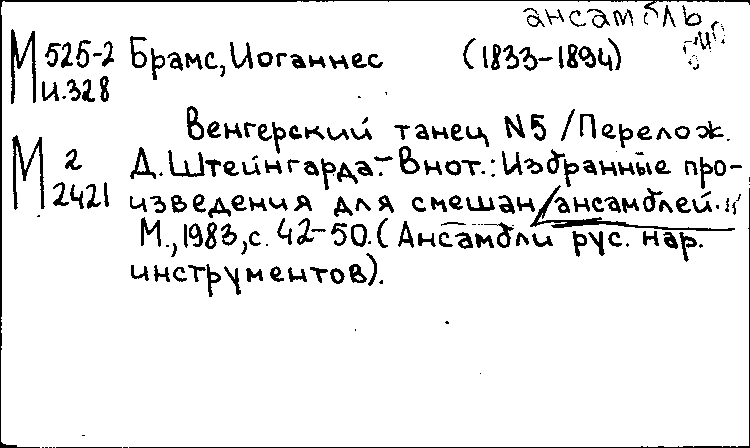 ансамбль
М 525-2 Брамс, Иоганнес (1833-1894)
и.328
Венгерский танец N5 /Перелож.
М 2 Д. Штейнгарда.- В нот.: Избранные про-
2421 изведения для смешан/ансамблей.
М., 1983, с. 42-50. (Ансамбли рус. нар.
инструментов).